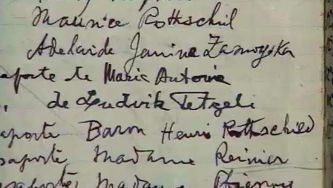 Maurice Rothschil
Adelaide Janina Zamoyska
aporte te Marie Antoni
de Ludvik Tetzeli
aporte Baron Henri Rothschild
saporte Madame Reinier
saporte Madame